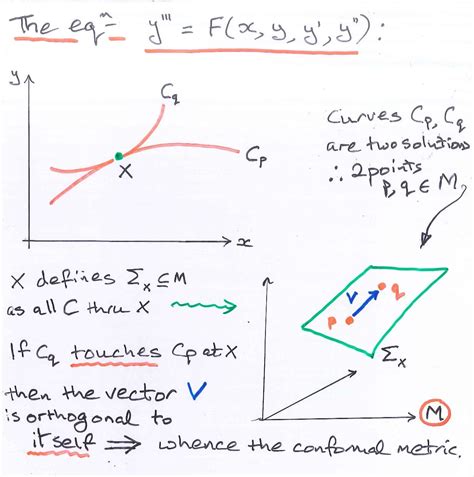 The eqⁿ y''' = F(x, y, y', y'') :
y
C_q
C_p
X
x
Curves C_p, C_q
are two solutions
∴ 2 points
p, q ∈ M,
X defines Σ_x ⊆ M
as all C thru X
If C_q touches C_p at X
then the vector V
is orthogonal to
itself ⇒ whence the conformal metric.
p
V
q
Σ_x
M